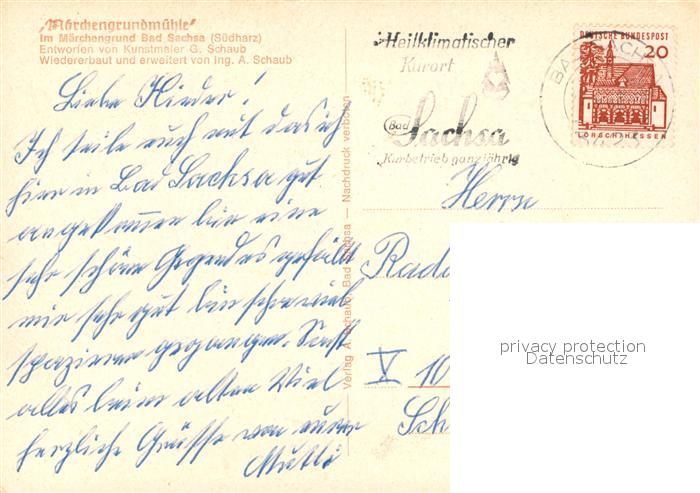 „Märchengrundmühle"
im Märchengrund Bad Sachsa (Südharz)
Entworfen von Kunstmaler G. Schaub
Wiedererbaut und erweitert von Ing. A. Schaub
Liebe Kinder!
Ich teile euch mit das ich
hier in Bad Sachsa gut
angekommen bin eine
sehr schöne Gegend es gefällt
mir sehr gut bin schon viel
spazieren gegangen. Sonst
alles beim alten Viel
herzliche Grüsse von eurer
Mutti
Verlag A. Schaub, Bad Sachsa — Nachdruck verboten
Heilklimatischer
Kurort
Bad Sachsa
Kurbetrieb ganzjährig
BAD SACHSA
DEUTSCHE BUNDESPOST
20
LORSCH/HESSEN
Herrn
Rado
V 10
Sch
privacy protection
Datenschutz